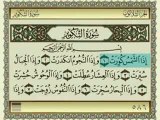 الجزء الثلاثون سورة التكوير
سورة التكوير
بسم الله الرحمن الرحيم
إِذَا الشَّمْسُ كُوِّرَتْ وَإِذَا النُّجُومُ انكَدَرَتْ وَإِذَا الْجِبَالُ
سُيِّرَتْ وَإِذَا الْعِشَارُ عُطِّلَتْ وَإِذَا الْوُحُوشُ حُشِرَتْ
وَإِذَا الْبِحَارُ سُجِّرَتْ وَإِذَا النُّفُوسُ زُوِّجَتْ وَإِذَا
٥٨٦